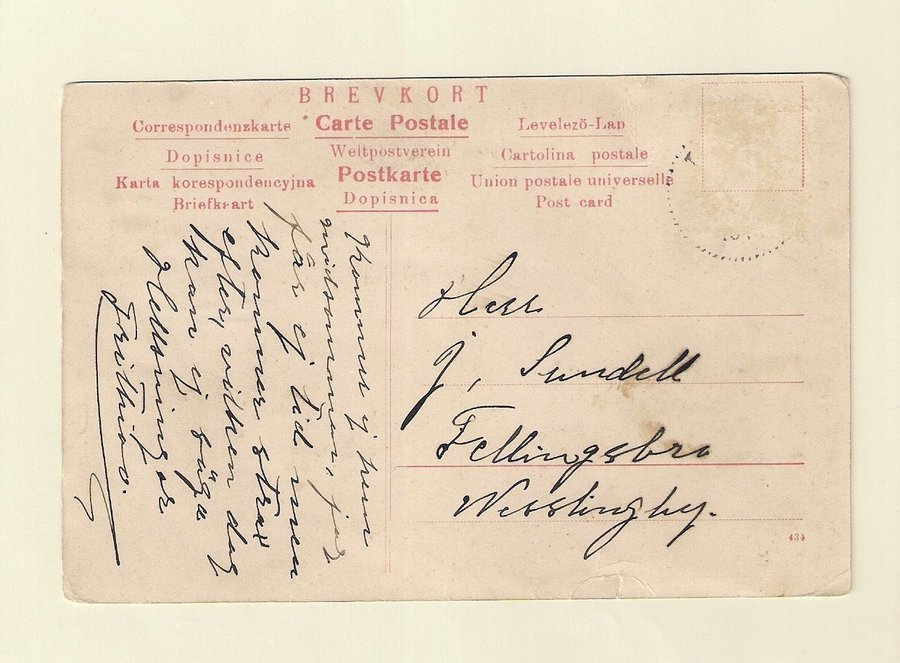 BREVKORT
Correspondenzkarte
Carte Postale
Levelezö-Lap
Dopisnice
Weltpostverein
Cartolina postale
Karta korespondencyjna
Postkarte
Union postale universelle
Briefkaart
Dopisnica
Post card
Kommer ej hem
midsommar, jag
får ej tid men
kommer strax
efter, vilken dag
kan ej säga
Hellsningar
Frithiov.
Herr
J, Sundell
Fellingsbro
Wesslingby.
434